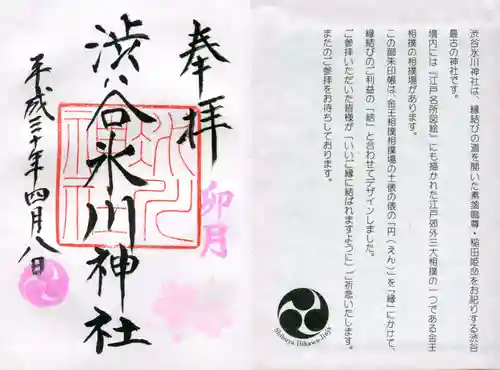 奉拝
渋谷氷川神社
平成三十年四月八日
氷川神社
卯月
渋谷氷川神社は、縁結びの道を開いた素盞鳴尊・稲田姫命をお祀りする渋谷
最古の神社です。
境内には『江戸名所図絵』にも描かれた江戸郊外三大相撲の一つである金王
相撲の相撲場があります。
この御朱印帳は、金王相撲相撲場の土俵の俵の「円(えん)」を「縁」にかけて、
縁結びのご利益の「結」と合わせてデザインしました。
ご参拝いただいた皆様が「いいご縁に結ばれますように」ご祈念いたします。
またのご参拝をお待ちしております。
Shibuya Hikawa Jinja